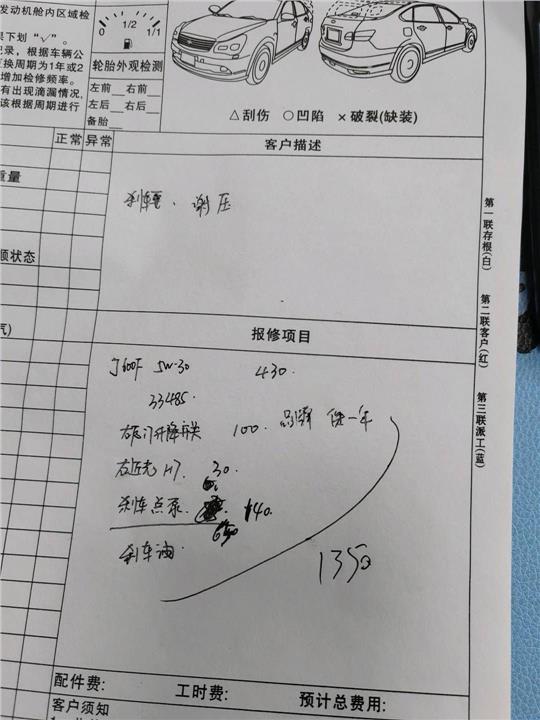 发动机舱内区域检
果下划“√”。
记录，根据车辆公
更换周期为1年或2
增加检修频率。
有出现滴漏情况，
该根据周期进行
1/2 1/1
轮胎外观检测
左前 右前
左后 右后
备胎
△刮伤 ○凹陷 ×破裂(缺装)
正常 异常
客户描述
重量
刹车 泄压
须状态
气)
报修项目
5W-30 430.
33485
升降开关 100. 保一年
右近光 H7. 30.
刹车总泵. 140.
650
刹车油.
1350
配件费: 工时费: 预计总费用:
客户须知
第一联存根(白) 第二联客户(红) 第三联派工(蓝)